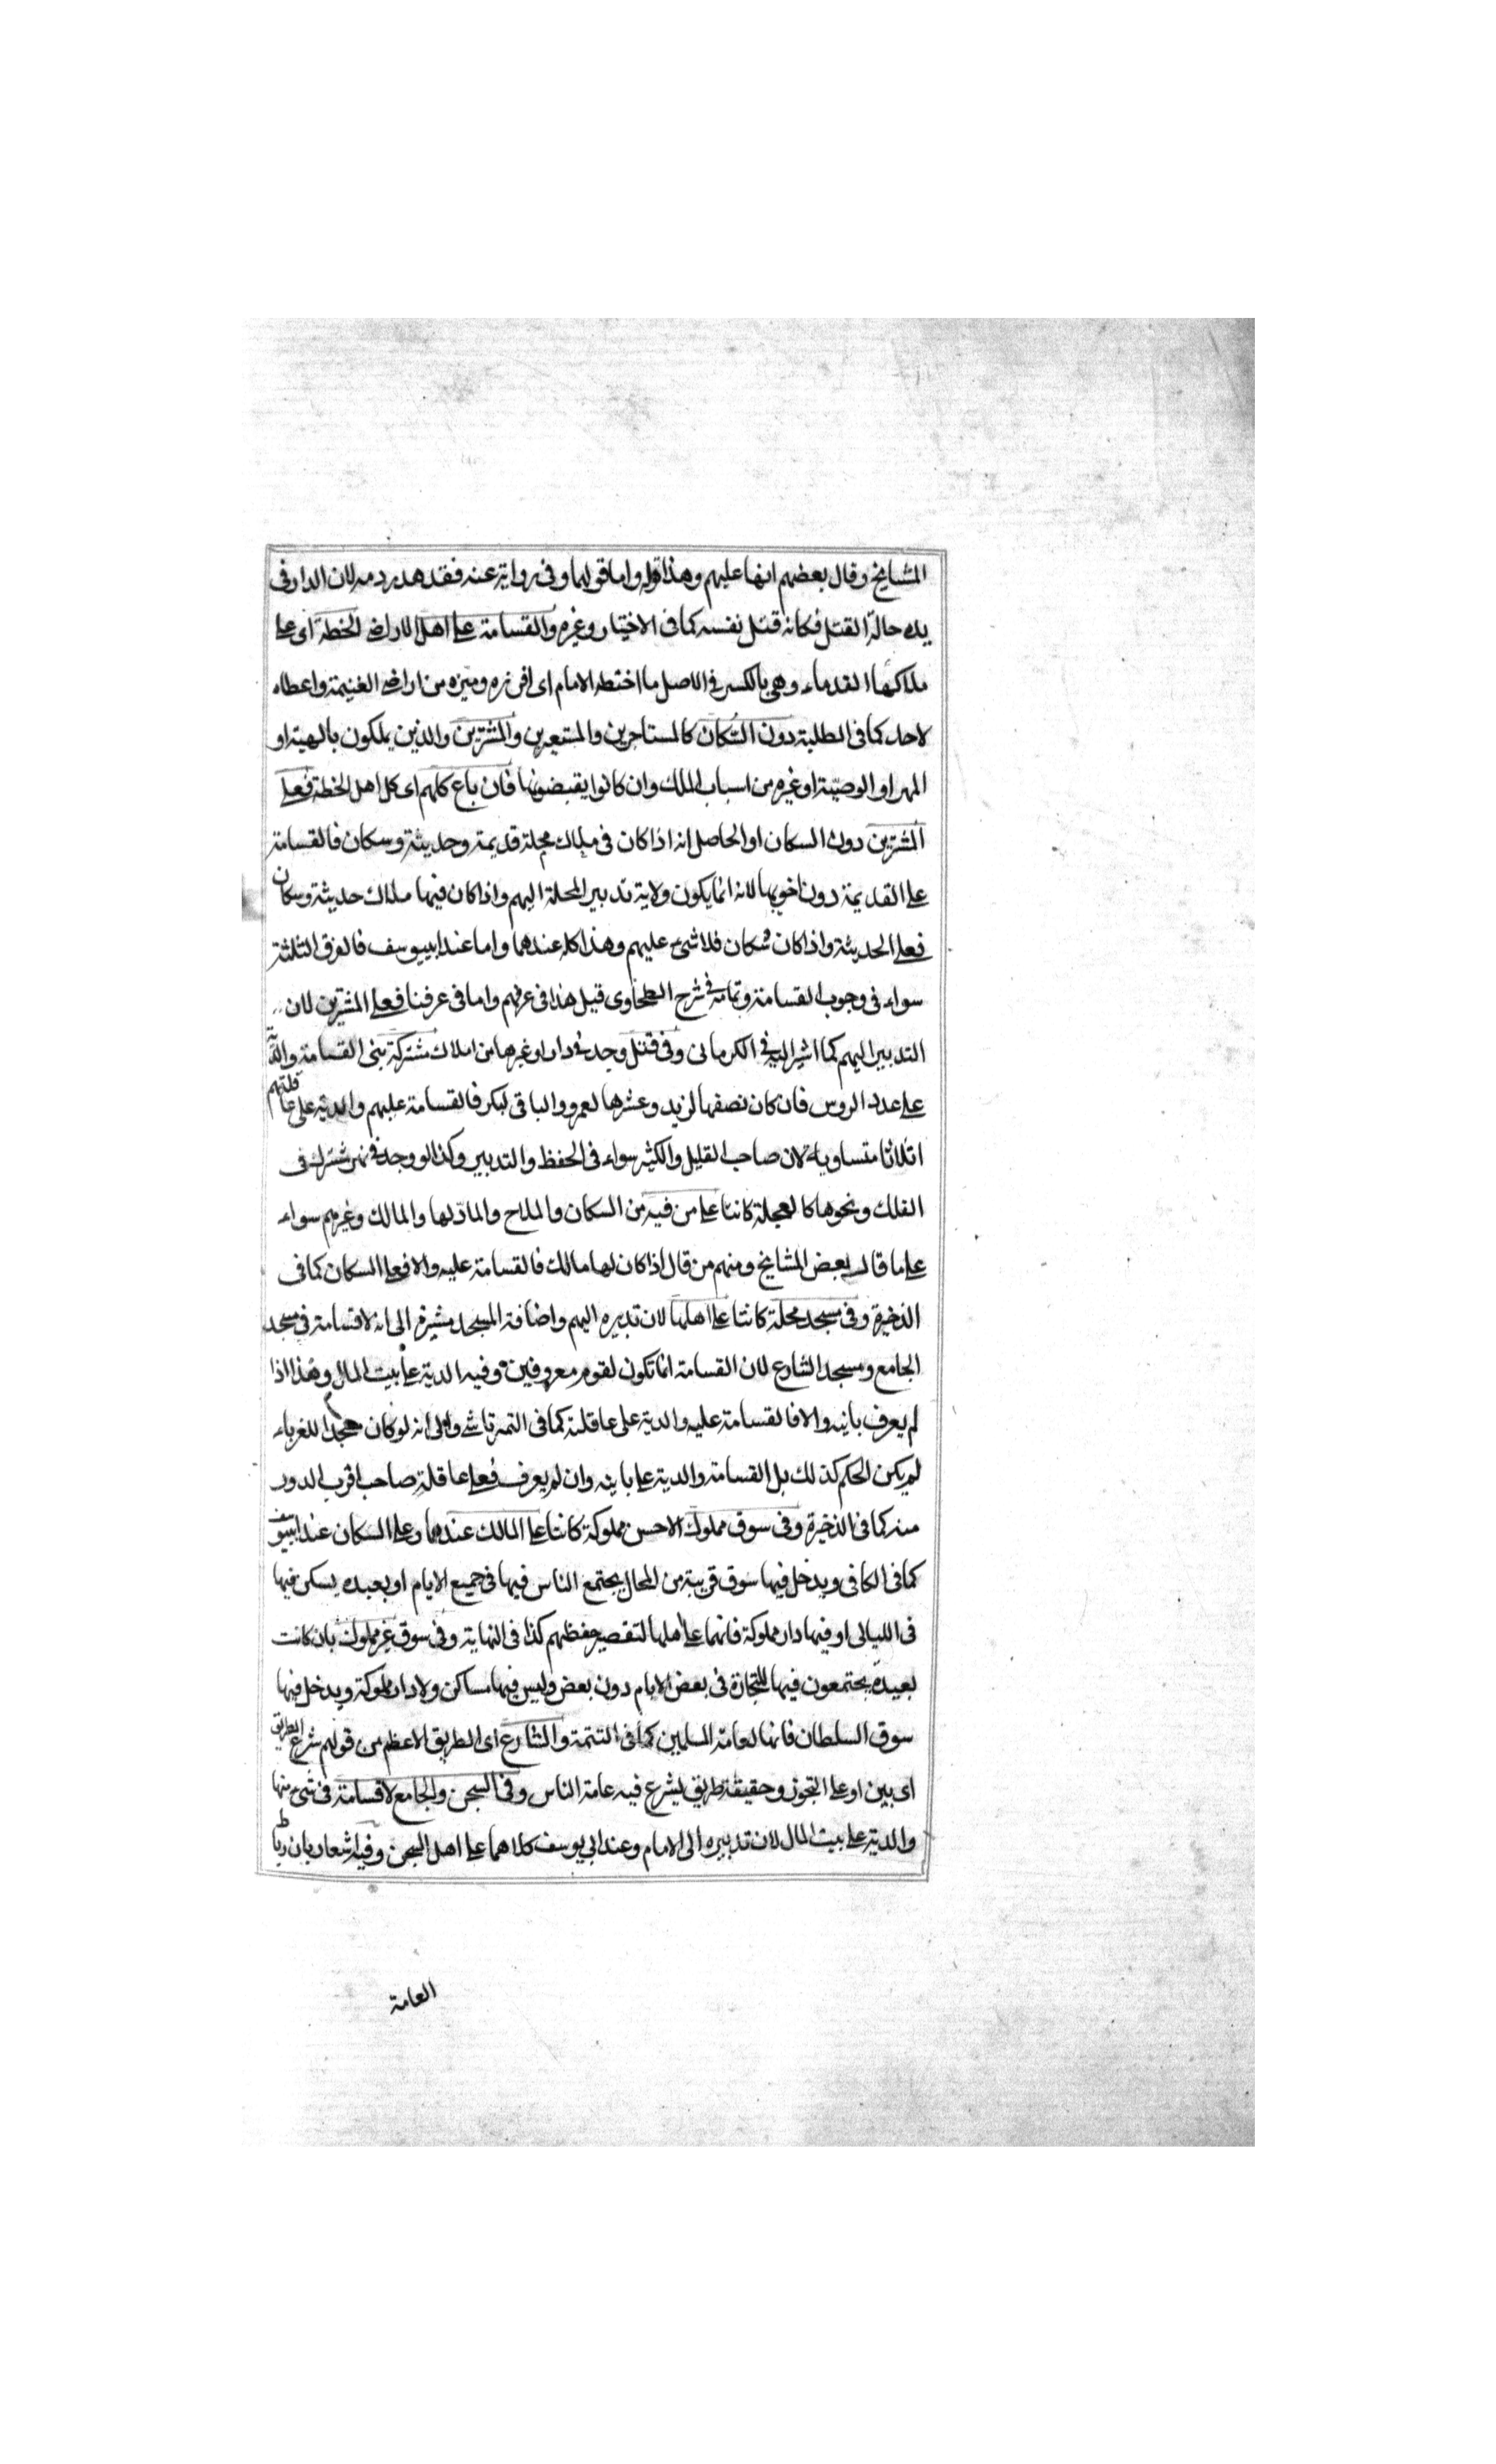 المشايخ وقال بعضهم انها عليهم وهذا قوله واما قولهما وفى رواية عنه فقد هدر دمه لان الدار فى
يده حالة القتل فكانه قتل نفسه كما فى الاختيار وغيره والقسامة على اهل الاراضى الخطة اى على
ملاكها القدماء وهى بالكسر فى الاصل ما اختطه الامام اى افرزه وميزه من اراضى الغنيمة واعطاه
لاحد كما فى الطلبة دون السّكان كالمستاجرين والمستعيرين والمشترين والذين يملكون بالهبة او
المهر او الوصيّة او غيره من اسباب الملك وان كانوا يقبضونها فان باع كلهم اى كل اهل الخطة فعلى
المشترين دون السكان او الحاصل انه اذا كان فى ملاك محلة قديمة وحديثة وسكان فالقسامة
على القديمة دون اخويها لانه انما يكون ولاية تدبير المحلة اليهم واذا كان فيها ملاك حديثة وسكان
فعلى الحديثة واذا كان سكان فلا شئ عليهم وهذا كله عندهما واما عند ابييوسف فالفرق الثلثة
سواء فى وجوب القسامة وتمامه فى شرح الطحاوى قيل هذا فى عرفهم واما فى عرفنا فعلى المشترين لان
التدبير اليهم كما اشير اليه فى الكرمانى وفى قتل وجد فى دار او غيرها من املاك مشتركة بنى القسامة والدية
على عدد الروس فان كان نصفها لزيد وعشرها لعمرو والباقى لبكر فالقسامة عليهم والدية على عاقلتهم
اثلاثا متساوية لان صاحب القليل والكثير سواء فى الحفظ والتدبير وكذا لو وجد فى نهر مشترك فى
الفلك ونحوها كالعجلة كانتا على من فيه من السكان والملاح والمادّ لها والمالك وغيرهم سواء
على ما قال بعض المشايخ ومنهم من قال اذا كان لها مالك فالقسامة عليه والا فعلى السكان كما فى
الذخيرة وفى مسجد محلة كانتا على اهلها لان تدبيره اليهم واضافة المسجد مشيرة الى انه لا قسامة فى مسجد
الجامع ومسجد الشارع لان القسامة انما تكون لقوم معروفين وفيه الدية على بيت المال وهذا اذا
لم يعرف بانيه والا فالقسامة عليه والدية على عاقلته كما فى التمرتاشى والى انه لو كان مسجدا للغرباء
لم يكن الحكم كذلك بل القسامة والدية على بانيه وان لم يعرف فعلى عاقلة صاحب اقرب الدور
منه كما فى الذخيرة وفى سوق مملوك الاحسن مملوكة كانتا على المالك عندهما وعلى السكان عند ابييوسف
كما فى الكافى ويدخل فيها سوق قريبة من المحال يجتمع الناس فيها فى جميع الايام او بعيده يسكن فيها
فى الليالى او فيها دار مملوكة فانهما على اهلها لتقصير حفظهم كذا فى النهاية وفى سوق غير مملوك بان كانت
بعيدة يجتمعون فيها للتجارة فى بعض الايام دون بعض وليس فيها مساكن ولا دار مملوكة ويدخل فيها
سوق السلطان فانها لعامة المسلمين كما فى التتمة والشارع اى الطريق الاعظم من قولهم شرع الطريق
اى بين او على التجوز وحقيقة طريق يشرع فيه عامة الناس وفى السجن والجامع لا قسامة فى شئ منها
والدية على بيت المال لان تدبيره الى الامام وعند ابي يوسف كلاهما على اهل السجن وفيه اشعار بان رباط
العامة